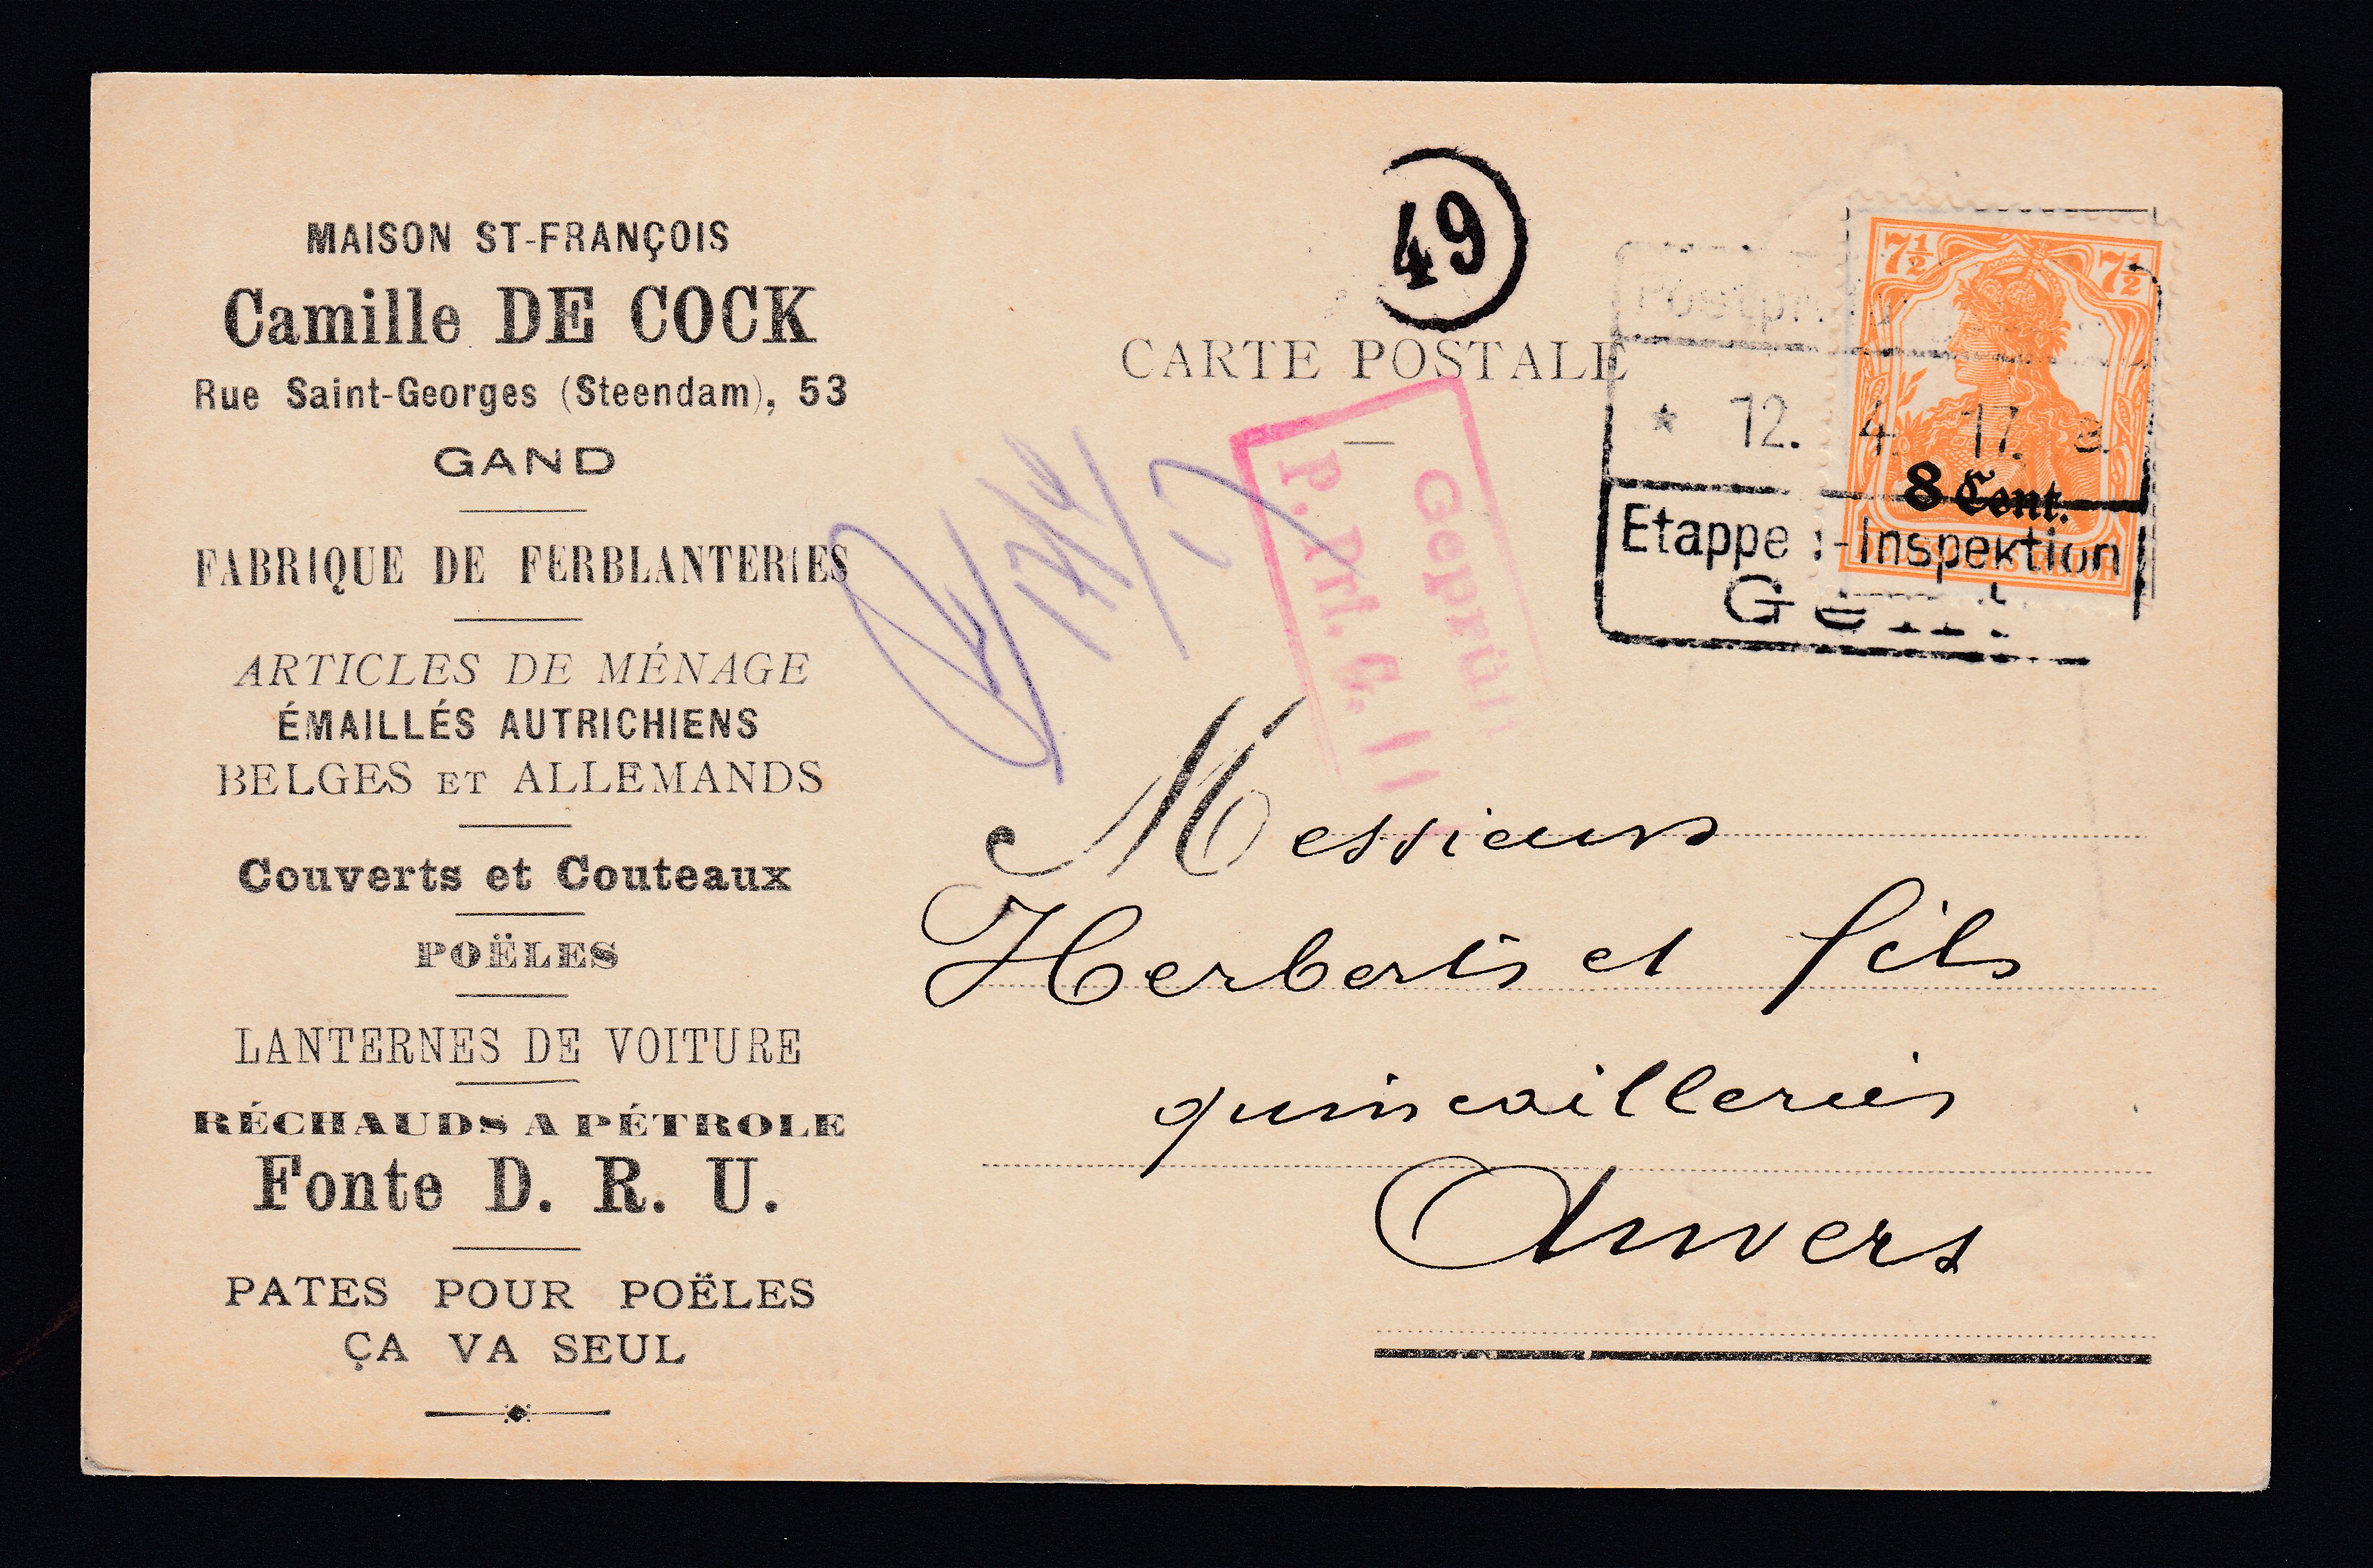 MAISON ST-FRANÇOIS
Camille DE COCK
Rue Saint-Georges (Steendam), 53
GAND
FABRIQUE DE FERBLANTERIES
ARTICLES DE MÉNAGE
ÉMAILLÉS AUTRICHIENS
BELGES ET ALLEMANDS
Couverts et Couteaux
POËLES
LANTERNES DE VOITURE
RÉCHAUDS A PÉTROLE
Fonte D. R. U.
PATES POUR POËLES
ÇA VA SEUL
49
CARTE POSTALE
7½ 7½
* 12. 4. 17.
8 Cent.
Etappen-Inspektion
Gent
Geprüft
P. Prf. G. 11
Messieurs
Herberts et fils
quincailleries
Anvers